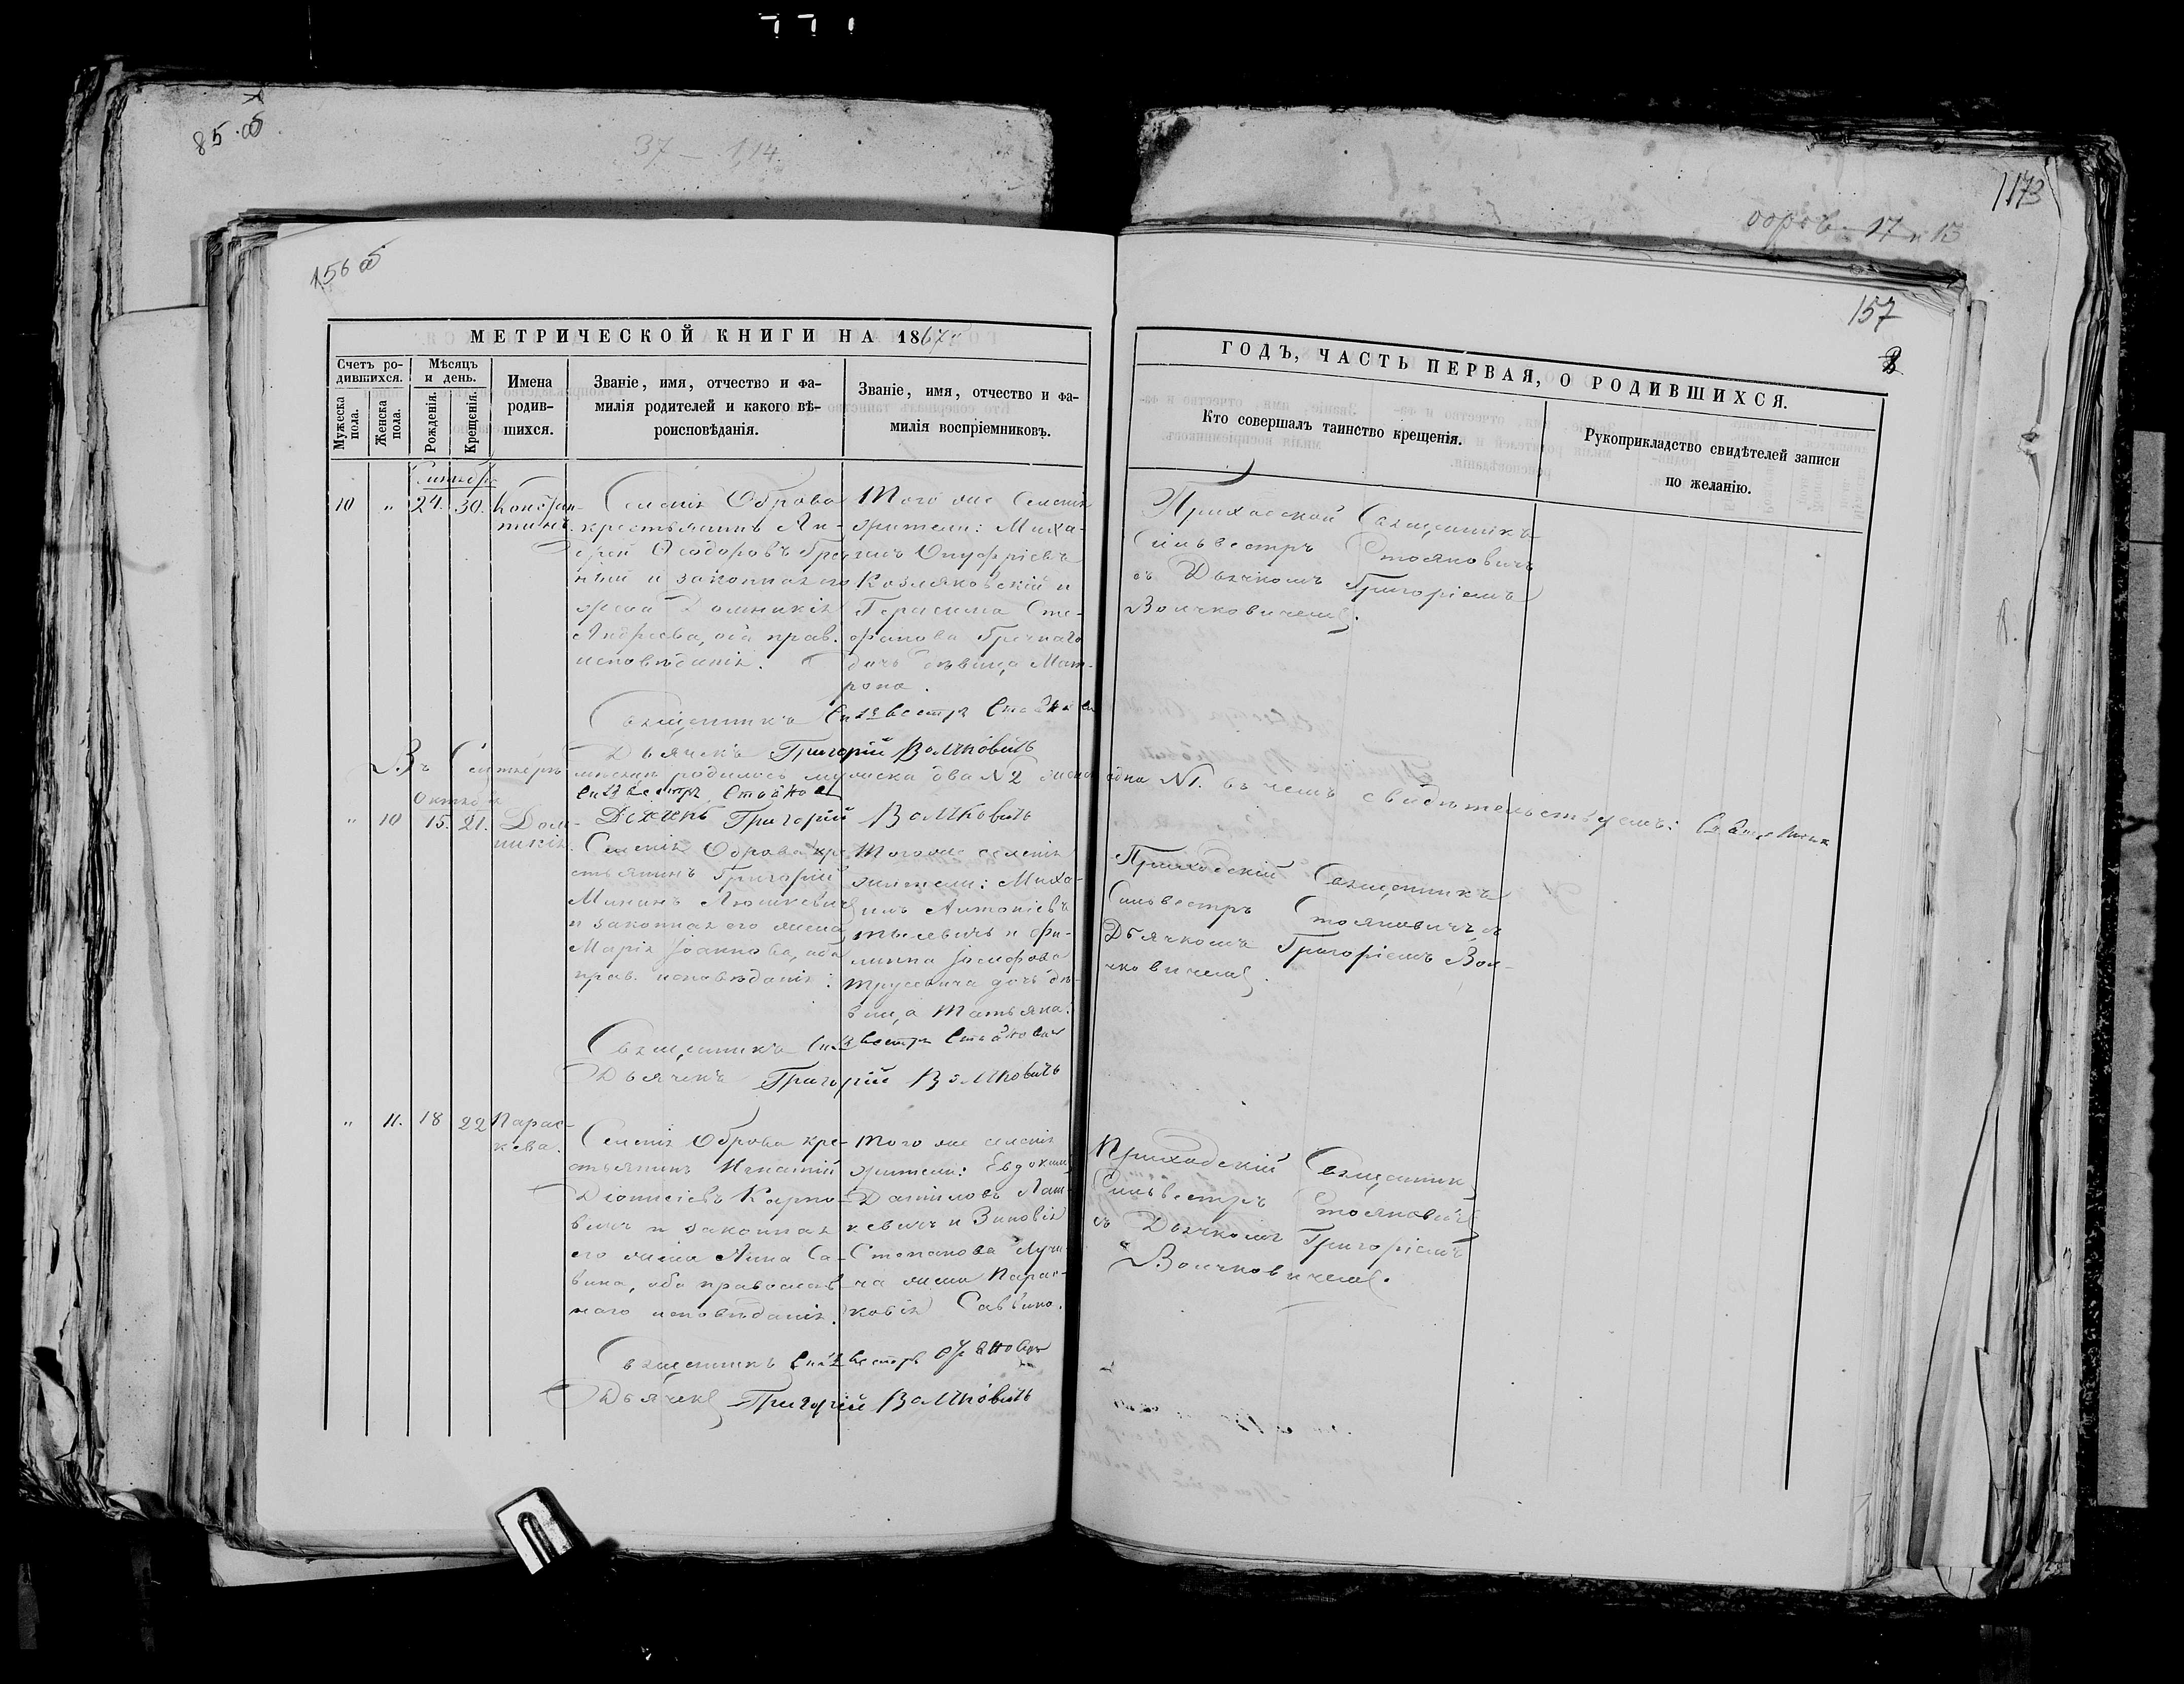 85 об
37 — 114
1173
156 об
157
МЕТРИЧЕСКОЙ КНИГИ НА 1867
ГОДЪ, ЧАСТЬ ПЕРВАЯ, О РОДИВШИХСЯ.
Счетъ ро-
дившихся.
Мужеска
пола.
Женска
пола.
Мѣсяцъ
и день.
Рожденія.
Крещенія.
Имена
родив-
шихся.
Званіе, имя, отчество и фа-
милія родителей и какого вѣ-
роисповѣданія.
Званіе, имя, отчество и фа-
милія воспріемниковъ.
Кто совершалъ таинство крещенія.
Рукоприкладство свидѣтелей записи
по желанію.
10 „ 24. 30.
Констан-
тинъ.
Селенія Оброва
крестьянинъ Ан-
дрей Ѳеодоровъ
и законная его
жена Домникія
Андреева, оба прав.
исповѣданія.
Того же селенія
жители: Миха-
илъ Онуфріевъ
Козляковскій и
Герасима Сте-
фанова Гречнаго
дочь дѣвица Мат-
рона.
Приходскій Священникъ
Сильвестръ Стояновичъ
съ Дьячкомъ Григоріемъ
Волчковичемъ.
Священникъ Сильвестръ
Дьячекъ Григорій Волчковичъ
Въ Сентябрѣ мѣсяцѣ родилось мужеска два №2 женска одна №1. въ чемъ свидѣтельствуемъ:
Сильвестръ
Дьячекъ Григорій Волчковичъ
Октябрь
„ 10 15. 21.
Дом-
никія.
Селенія Оброва кре-
стьянинъ Григорій
Мининъ Люшкевичъ
и законная его жена
Марія Іоаннова, оба
прав. исповѣданія.
Того же селенія
жители: Миха-
илъ Антоніевъ
и Фи-
липпа Іосифова
Трусевича дочь дѣ-
вица Татьяна.
Приходскій Священникъ
Сильвестръ Стояновичъ съ
Дьячкомъ Григоріемъ Вол-
чковичемъ.
Священникъ Сильвестръ
Дьячекъ Григорій Волчковичъ
„ 11. 18 22
Парас-
кева.
Селенія Оброва кре-
стьянинъ Игнатій
Діонисіевъ Карпо-
вичъ и законная
его жена Анна Са-
вина, оба православ-
наго исповѣданія.
Того же селенія
жители: Евдокимъ
Даниловъ Лат-
кевичъ и Зиновія
Степанова Лучи-
ча жена Парас-
ковія Саввина.
Приходскій Священникъ
Сильвестръ Стояновичъ
съ Дьячкомъ Григоріемъ
Волчковичемъ.
Священникъ Сильвестръ
Дьячекъ Григорій Волчковичъ